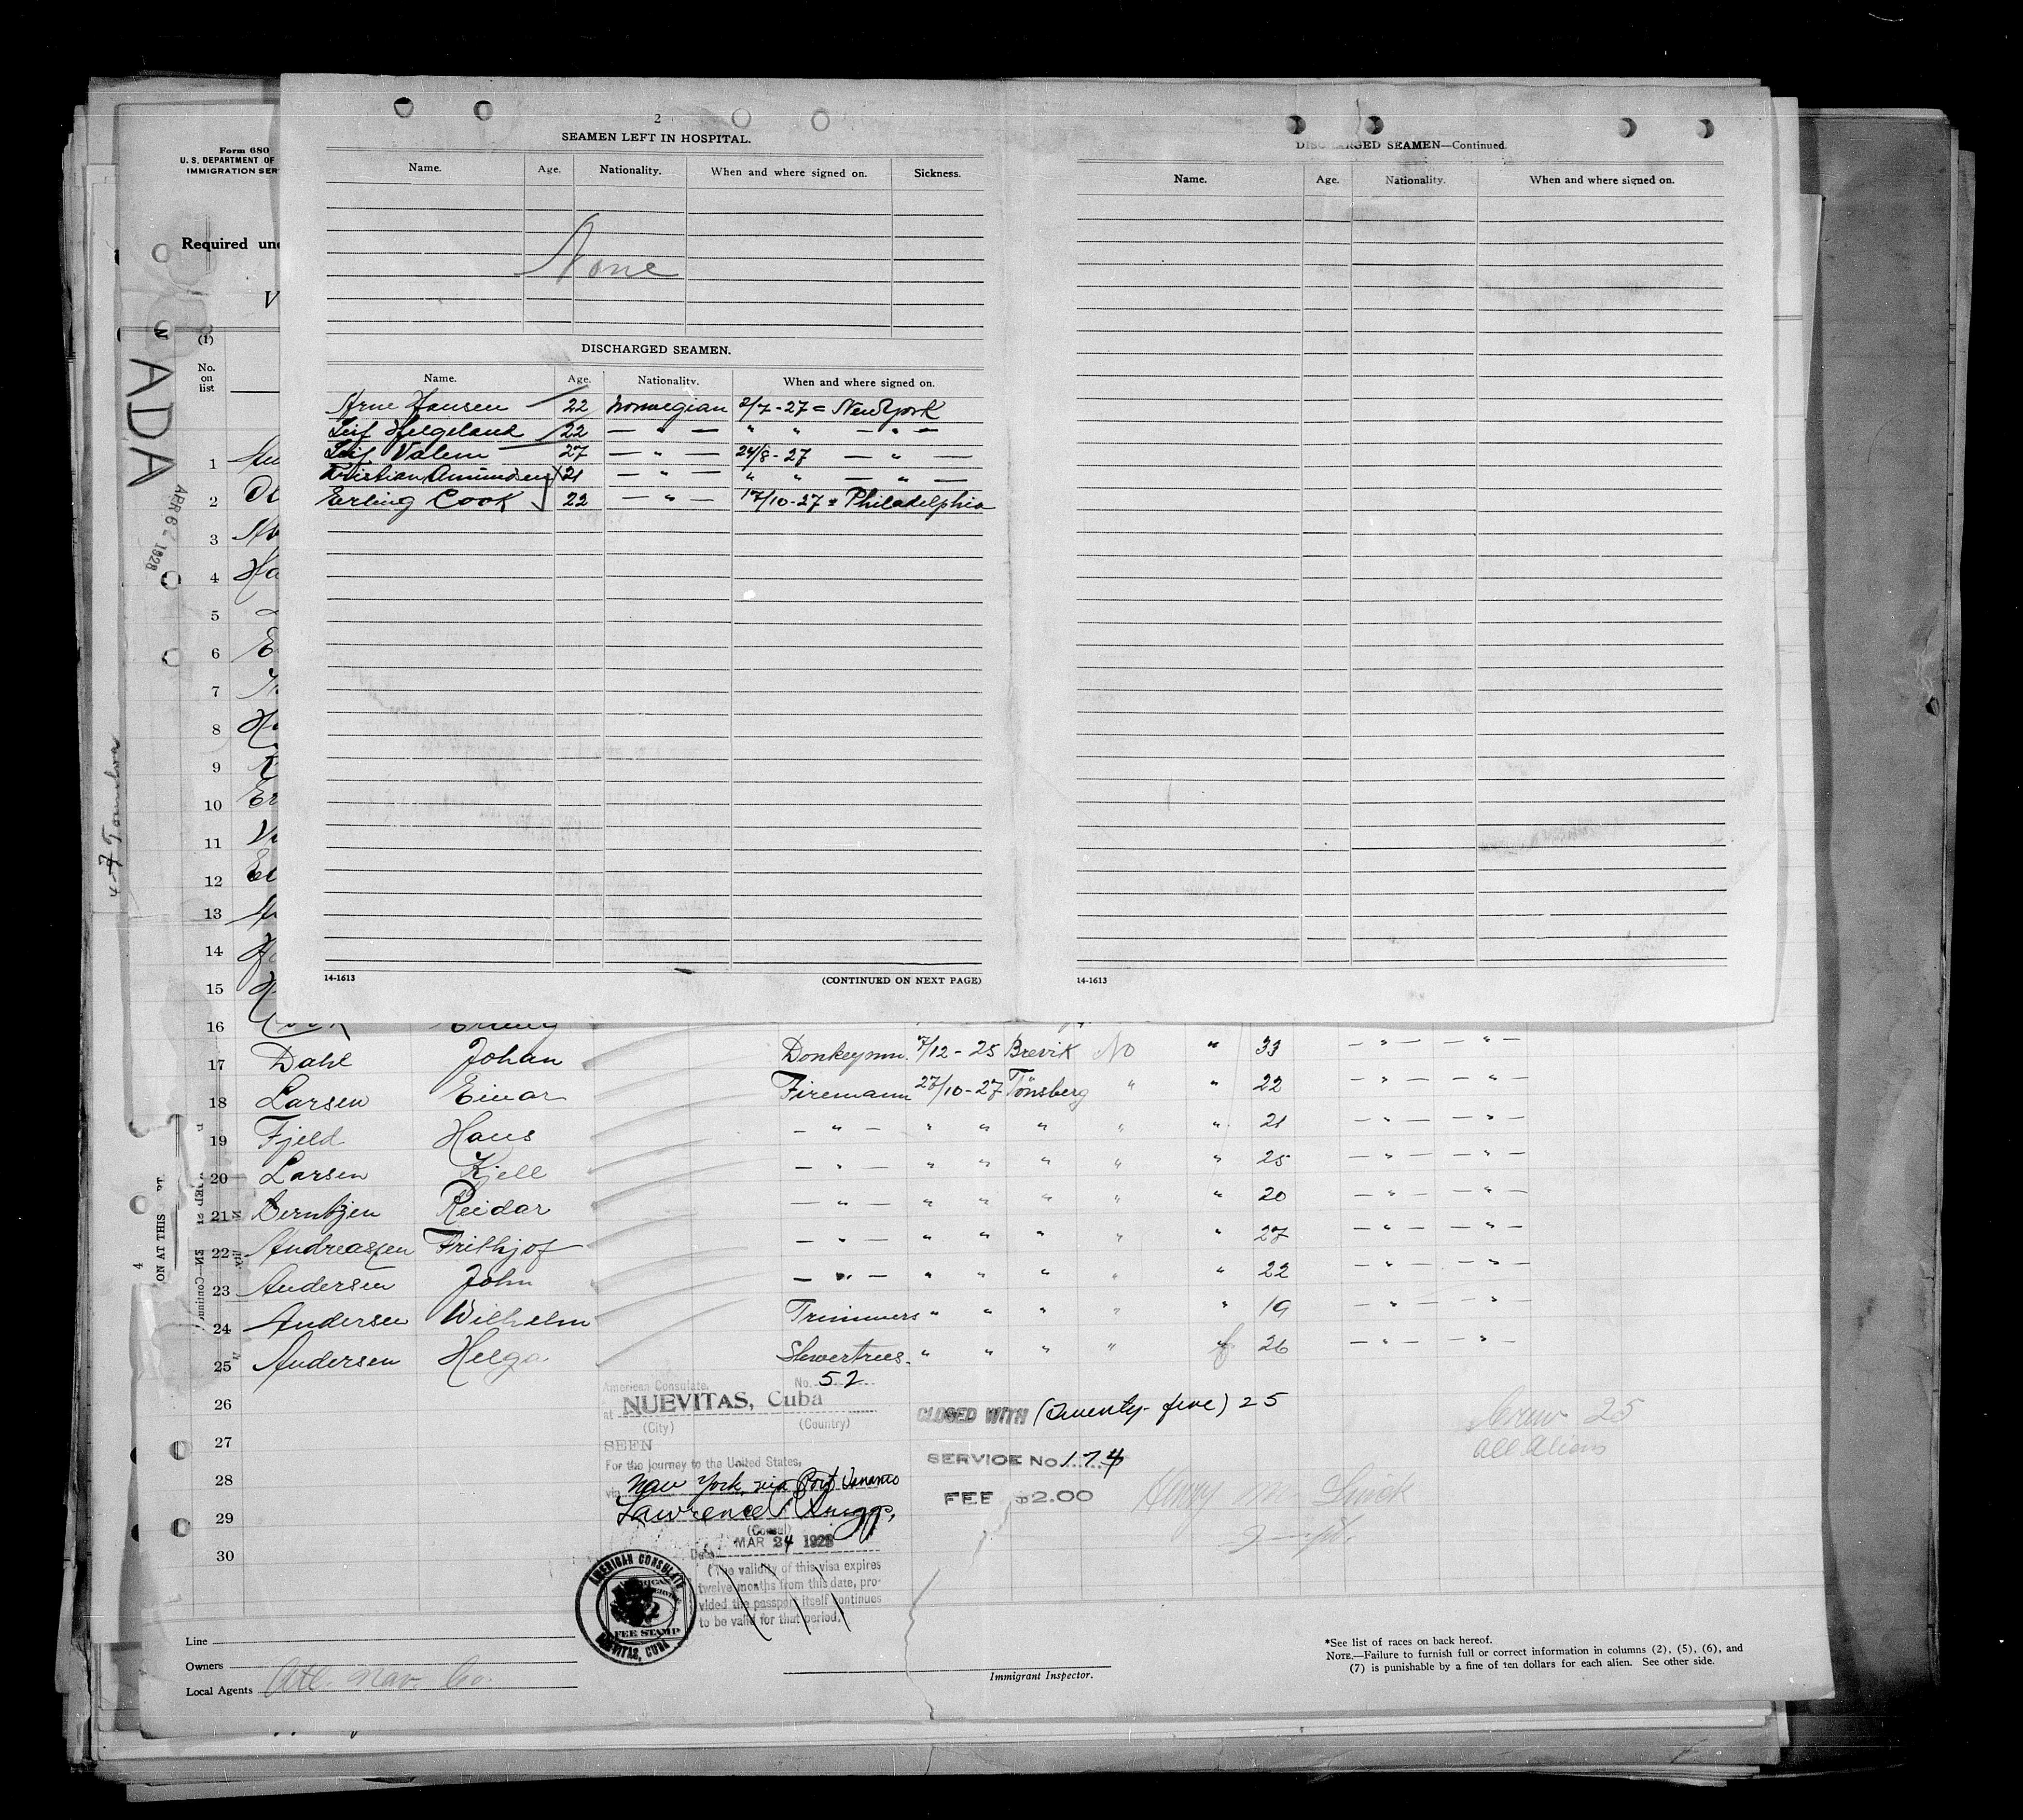 2
SEAMEN LEFT IN HOSPITAL.
Name. Age. Nationality. When and where signed on. Sickness.
None
DISCHARGED SEAMEN.
Name. Age. Nationality. When and where signed on.
Arne Hansen 22 Norwegian 2/7-27 = New York
Leif Helgeland 22 — " — " " — " —
Leif Valem 27 — " — 24/8-27 — " —
Kristian Amundsen 21 — " — " " — " —
Erling Cook 22 — " — 17/10-27 = Philadelphia
14-1613 (CONTINUED ON NEXT PAGE)
DISCHARGED SEAMEN—Continued.
Name. Age. Nationality. When and where signed on.
14-1613
Form 680
U. S. DEPARTMENT OF
IMMIGRATION SER
Required und
V
(1)
No.
on
list
ADA
APR 6 1928
1
2
3
4
5
6
7
8
9
10
11
12
13
14
15
16 Cook Erling
17 Dahl Johan Donkeymn. 7/12-25 Brevik No " 33 — " — — " —
18 Larsen Einar Firemann 27/10-27 Tönsberg " " 22 — " — — " —
19 Fjeld Hans — " — " " " " " 21 — " — — " —
20 Larsen Kjell — " — " " " " " 25 — " — — " —
21 Berntzen Reidar — " — " " " " " 20 — " — — " —
22 Andreassen Frithjof — " — " " " " " 27 — " — — " —
23 Andersen John — " — " " " " " 22 — " — — " —
24 Andersen Wilhelm Trimmers " " " " " 19 — " — — " —
25 Andersen Helga Stewertres. " " " " f 26 — " — — " —
26
27
28
29
30
American Consulate, No. 52
at NUEVITAS, Cuba
(City) (Country)
SEEN
For the journey to the United States,
via New York, via Port
Lawrence
(Consul)
Date MAR 24 1928
(The validity of this visa expires
twelve months from this date, pro-
vided the passport itself continues
to be valid for that period.)
AMERICAN CONSULATE
FEE STAMP
NUEVITAS, CUBA
CLOSED WITH (Twenty-five) 25
SERVICE No. 174
FEE $2.00
Crew 25
all aliens
Line
Owners
Local Agents Atl. Nav. Co.
Immigrant Inspector.
*See list of races on back hereof.
NOTE.—Failure to furnish full or correct information in columns (2), (5), (6), and
(7) is punishable by a fine of ten dollars for each alien. See other side.
4
ON AT THIS